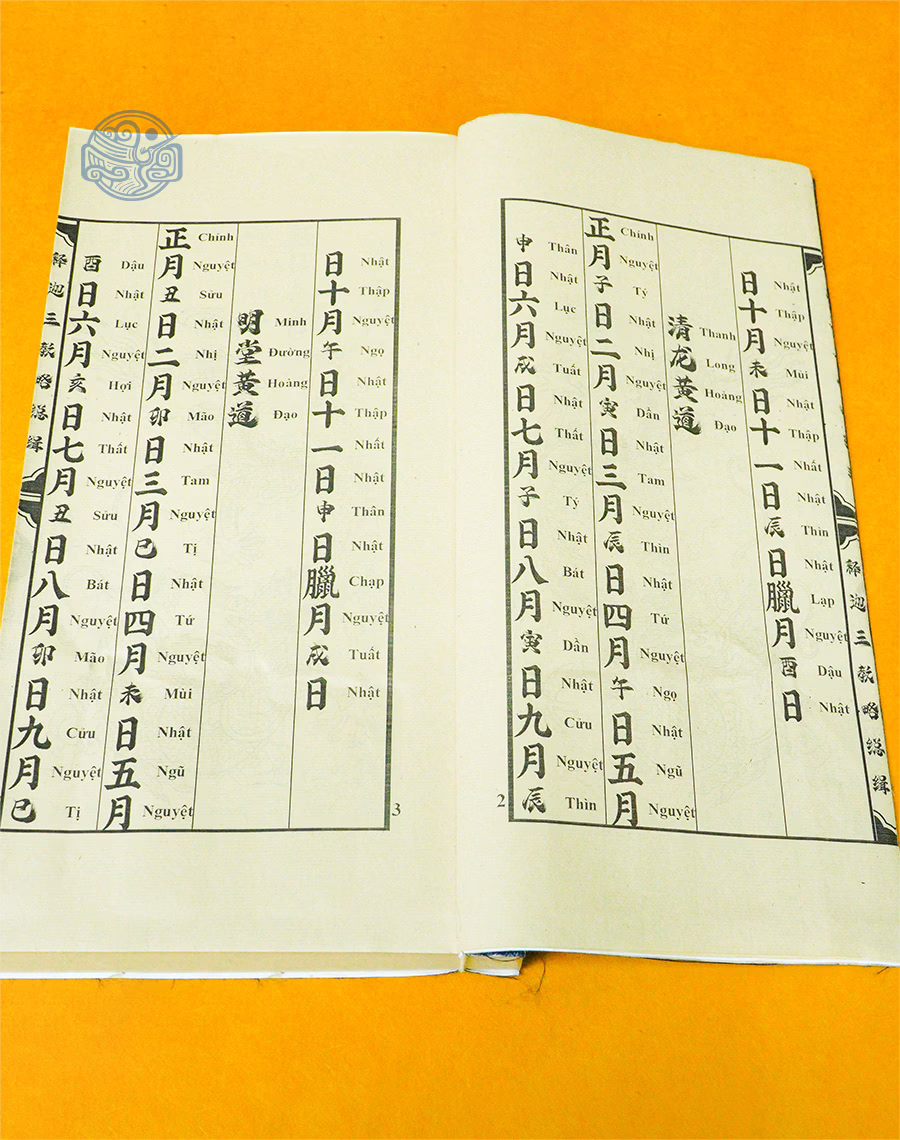 釋迦三教略總緝
日十月未日十一日辰日臘月酉日
Nhật Thập Nguyệt Mùi Nhật Thập Nhất Nhật Thìn Nhật Lạp Nguyệt Dậu Nhật
清龙黄道
Thanh Long Hoàng Đạo
正月子日二月寅日三月辰日四月午日五月
Chính Nguyệt Tý Nhật Nhị Nguyệt Dần Nhật Tam Nguyệt Thìn Nhật Tứ Nguyệt Ngọ Nhật Ngũ Nguyệt
申日六月戌日七月子日八月寅日九月辰
Thân Nhật Lục Nguyệt Tuất Nhật Thất Nguyệt Tý Nhật Bát Nguyệt Dần Nhật Cửu Nguyệt Thìn
2
日十月午日十一日申日臘月戌日
Nhật Thập Nguyệt Ngọ Nhật Thập Nhất Nhật Thân Nhật Chạp Nguyệt Tuất Nhật
明堂黄道
Minh Đường Hoàng Đạo
正月丑日二月卯日三月巳日四月未日五月
Chính Nguyệt Sửu Nhật Nhị Nguyệt Mão Nhật Tam Nguyệt Tị Nhật Tứ Nguyệt Mùi Nhật Ngũ Nguyệt
酉日六月亥日七月丑日八月卯日九月巳
Dậu Nhật Lục Nguyệt Hợi Nhật Thất Nguyệt Sửu Nhật Bát Nguyệt Mão Nhật Cửu Nguyệt Tị
釋迦三教略總緝
3